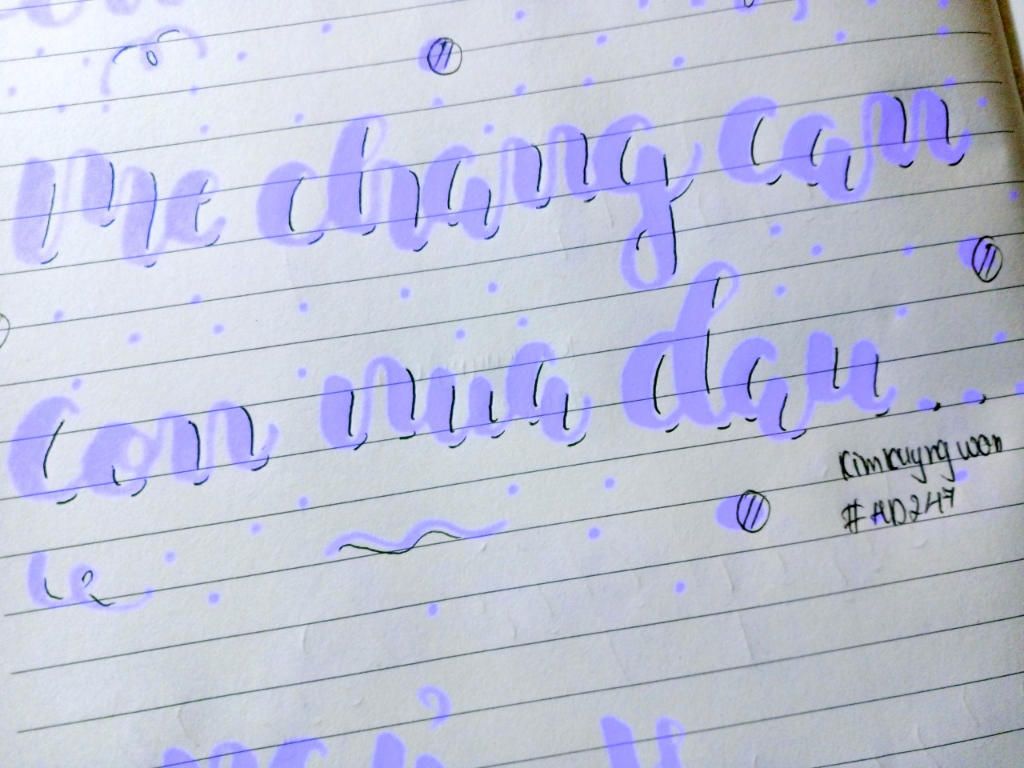 Me chang can
Con nua dau...
Kimkuyng won
#AD247